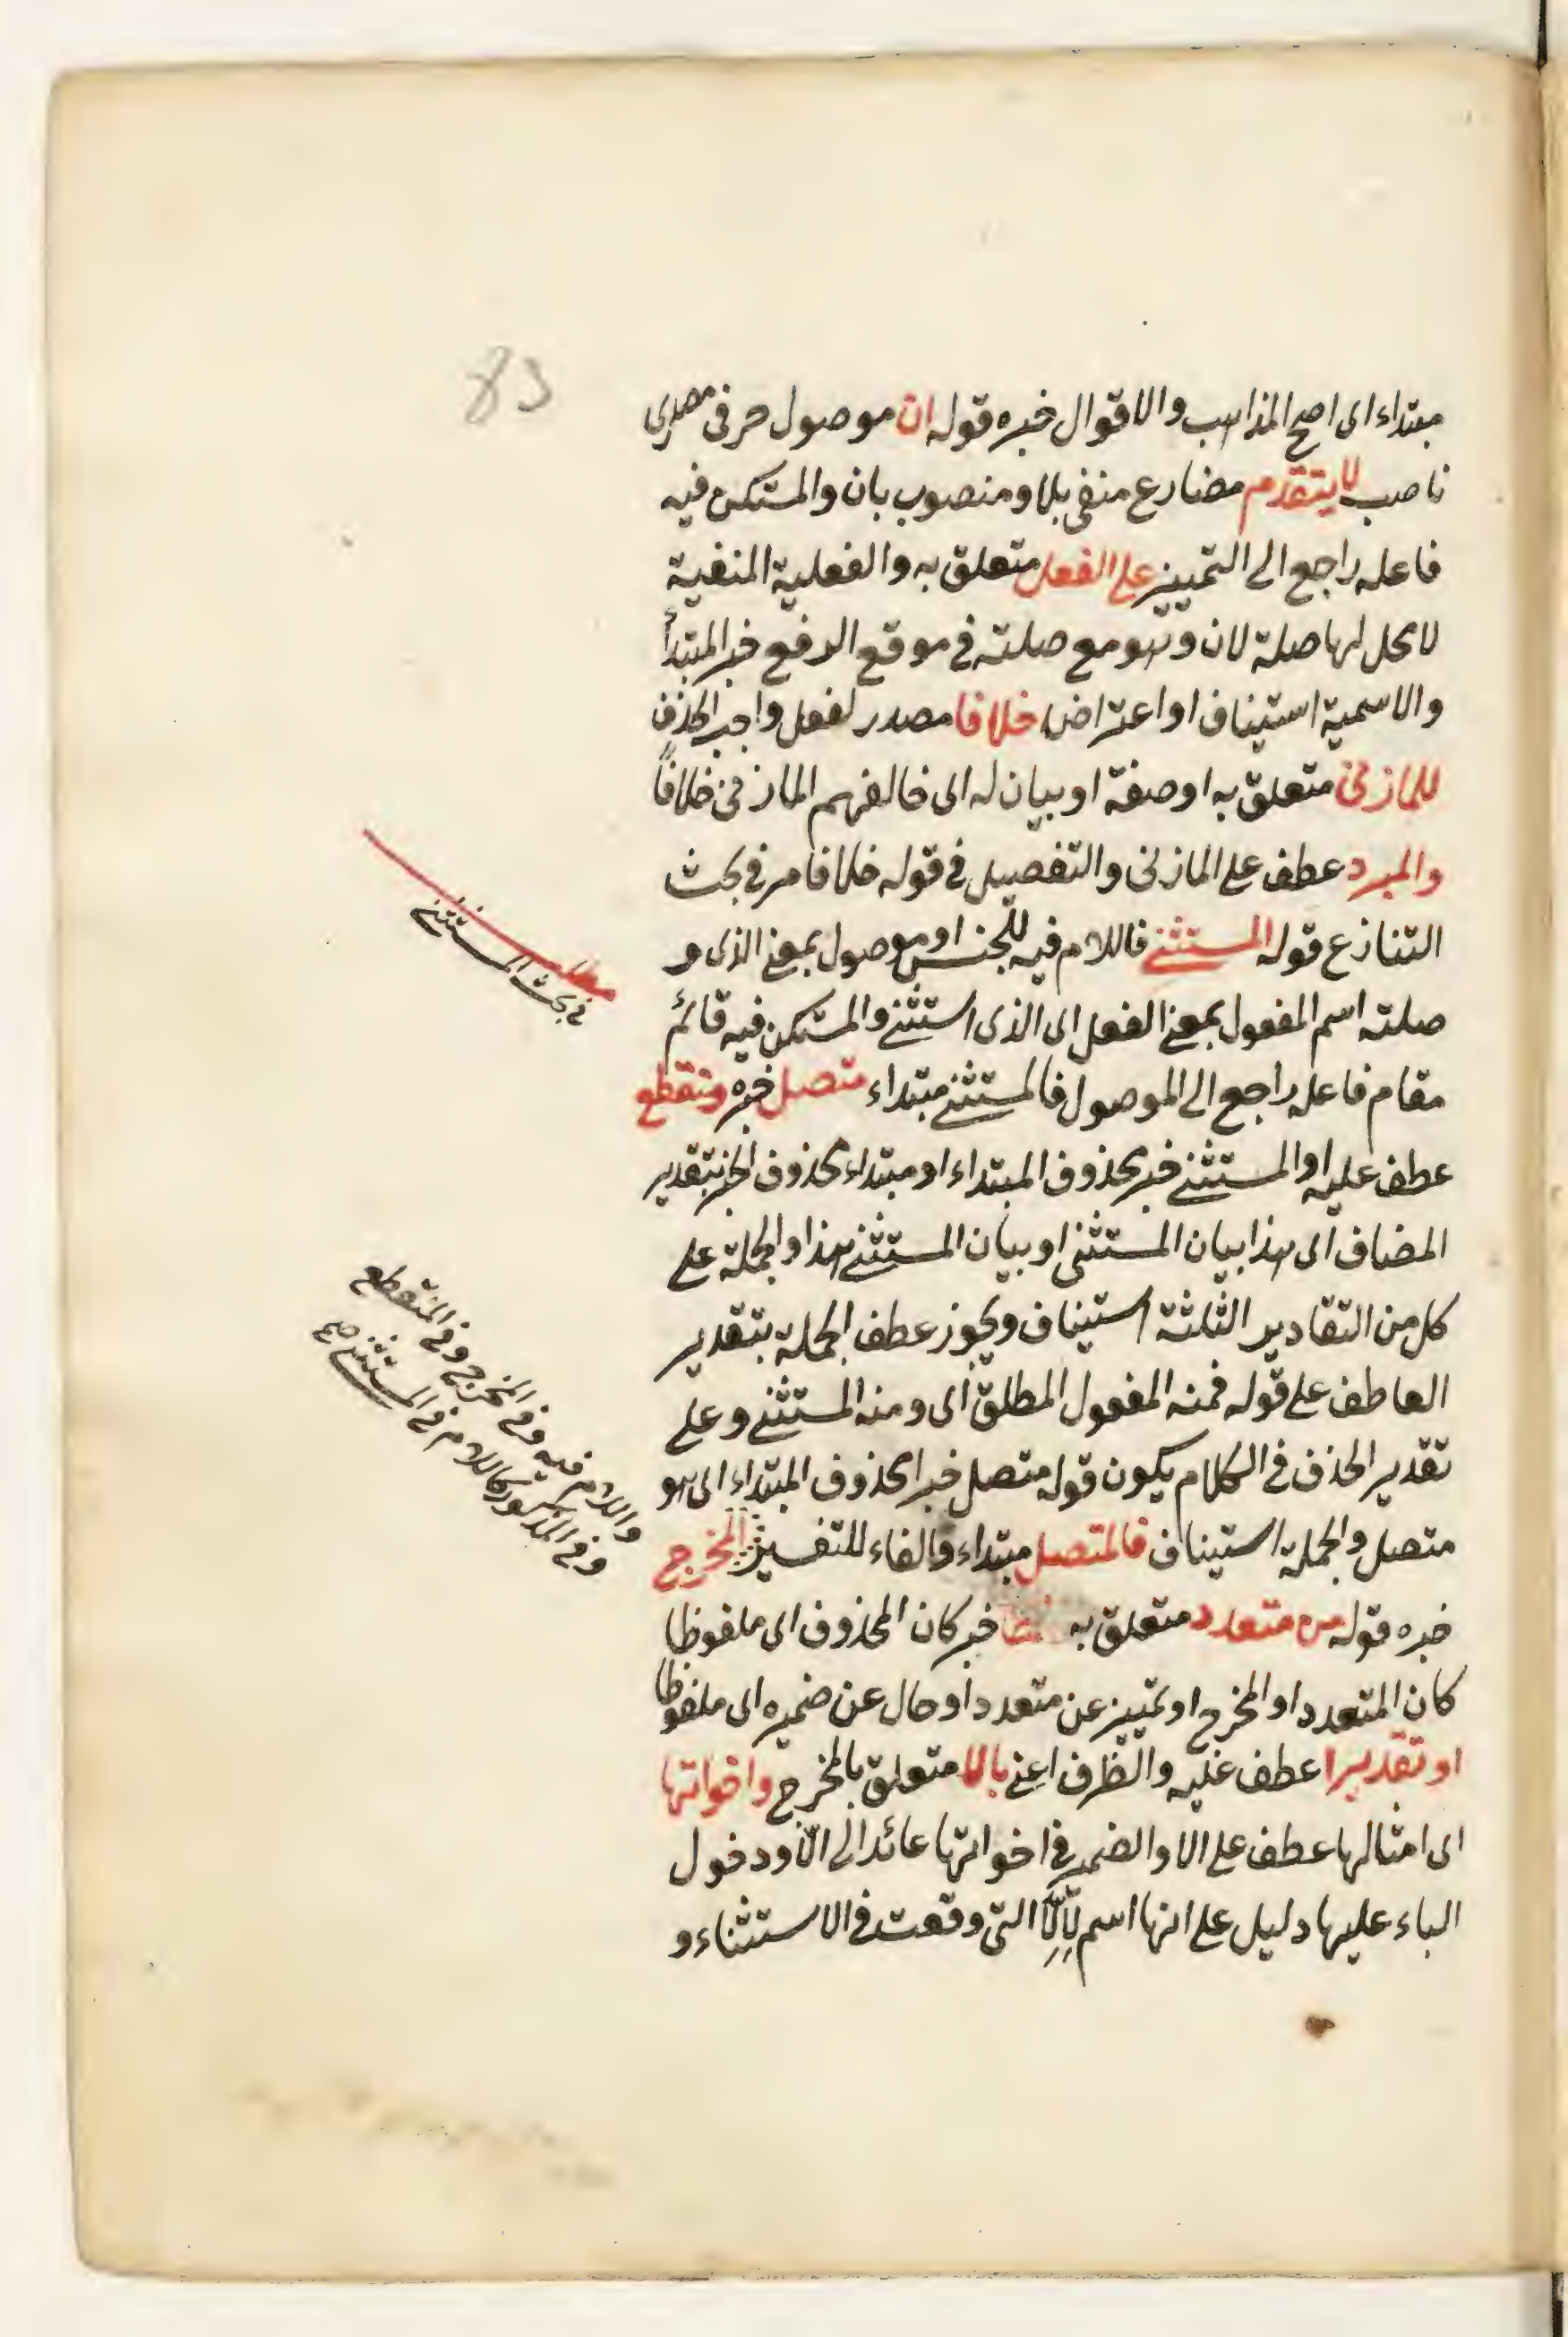 83
مبتداء اى اصح المذاهب والاقوال خبره قوله ان موصول حرفى مصدرى
ناصب لا يتقدم مضارع منفى بلا ومنصوب بان والمستكن فيه
فاعله راجع الى التمييز على الفعل متعلق به والفعلية المنفية
لا محل لها صلة لان وهو مع صلته فى موقع الرفع خبر المبتدأ
والاسمية استيناف او اعتراض خلافا مصدر لفعل واجب الحذف
للمازنى متعلق به او صفة او بيان له اى خالفهم المازنى خلافاً
والمبرد عطف على المازنى والتفصيل فى قوله خلافا مر فى بحث
التنازع قوله المستثنى فاللام فيه للجنس او موصول بمعنى الذى و
صلته اسم المفعول بمعنى الفعل اى الذى استثنى والمستكن فيه قائم
مقام فاعله راجع الى الموصول فالمستثنى مبتداء متصل خبره ومنقطع
عطف عليه او المستثنى خبر محذوف المبتداء او مبتداء محذوف الخبر بتقدير
المضاف اى هذا بيان المستثنى او بيان المستثنى هذا والجملة على
كل من التقادير الثلثة استيناف ويجوز عطف الجملة بتقدير
العاطف على قوله فمنه المفعول المطلق اى ومنه المستثنى وعلى
تقدير الحذف فى الكلام يكون قوله متصل خبرا محذوف المبتداء اى هو
متصل والجملة استيناف فالمتصل مبتداء والفاء للتفسير المخرج
خبره قوله من متعدد متعلق به لفظا خبر كان المحذوف اى ملفوظا
كان المتعدد او المخرج او تمييز عن متعدد او حال عن ضميره اى ملفوظا
او تقديرا عطف عليه والظرف اعنى بالا متعلق بالمخرج واخواتها
اى امثالها عطف على الا والضمير فى اخواتها عائد الى الّا ودخول
الباء عليها دليل على انها اسم لِاِلّا التى وقعت فى الاستثناء و
مطلب
فى بحث المستثنى
واللام فيه وفى المخرج وفى المنقطع
وفى المذكور كاللام فى المستثنى صح